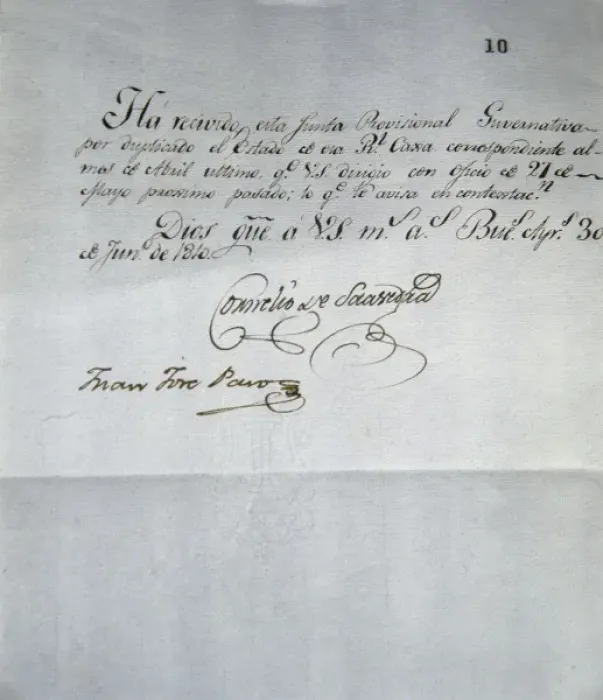 10
Há recivido esta Junta Provisional Guvernativa
por duplicado el Estado de esa Rl. Caxa correspondiente al
mes de Abril ultimo. qe. V.S. dirigio con oficio de 27 de
Mayo proximo pasado; lo qe. le avisa en contestacn.
Dios gue. á V.S. ms. as. Bues. Ayrs. 30
de Juno. de 1810.
Cornelio de Saavedra
Juan José Paso